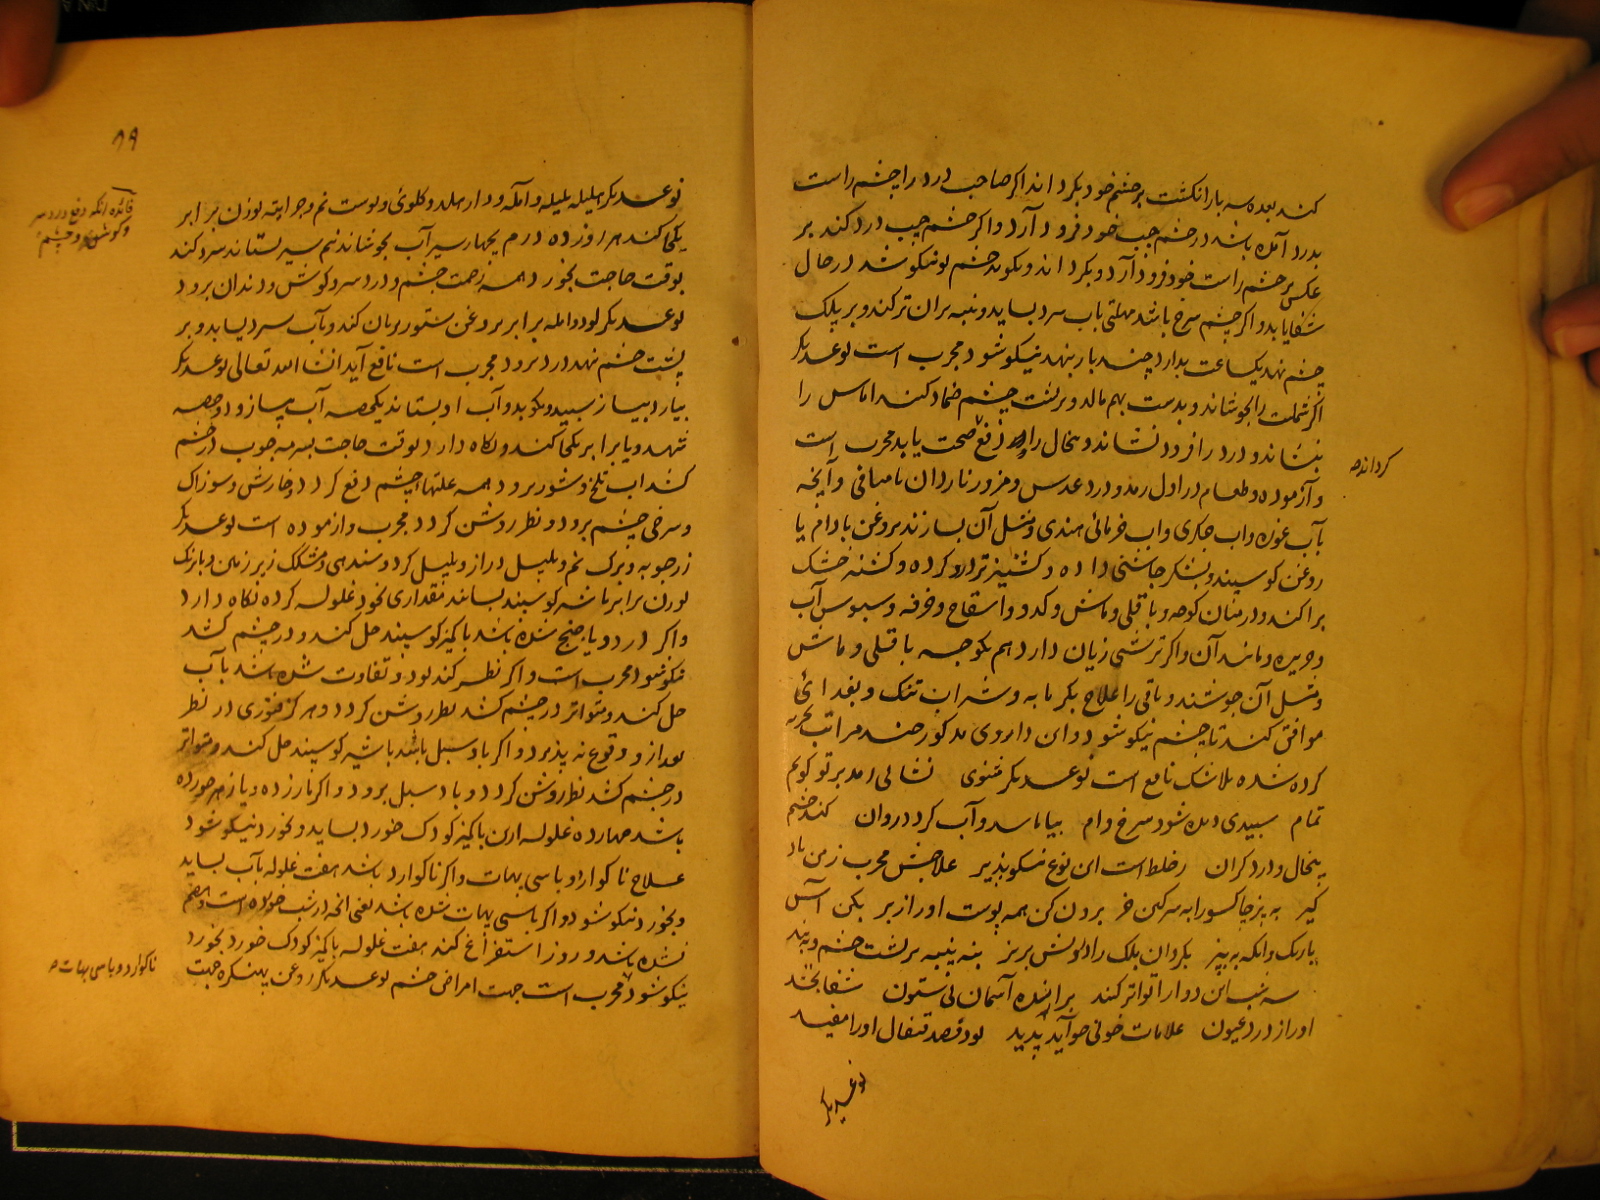 کند بعده سه بار انکشت بر چشم خود بکرداند اکر صاحب درد را چشم راست
بدرد آمده باشد در چشم چپ خود فرود آرد و اکر چشم چپ درد کند بر
عکس بر چشم راست خود فرود آرد و بکرداند و بکوید چشم تو نیکو شد در حال
شفا یابد و اکر چشم سرخ باشد باب سرد بساید و پنبه بران تر کند و بر پلک
چشم نهد یکساعت بدارد چند بار بنهد نیکو شود مجرب است نوعدیکر
اکر را بجوشاند و بدست بهم مالد و بر پشت چشم ضماد کند اماس را
بنشاند و درد را فرود نشاند و بخال را دفع صحت یابد مجرب است
و آزموده و طعام در اول رمد و درد عدس و مزور ناردان و آنچه
بآب غوره و اب و اب خرمائی هندی و مثل آن بسازند بروغن بادام یا
روغن کوسپند و بشکر چاشنی داده و کشنیز تر کرده و کشنه خشک
براکند و درمنان و باقلی و ماش و کدو و اسفناج و خرفه و سبوس آب
و جزیره و مانند آن و اکر ترشی زیان دارد هم باقلی و ماش
و مثل آن جوشند و باقی را علاج بکرمابه و شراب تنک و بغدائی
موافق کند تا چشم نیکو شود و این داروی مذکور چند مراتب تجربه
کرده شده بلا شک نافع است نوعدیکر مثنوی نشانی رمد بر تو کویم
تمام سپیدی دیده شود سرخ فام بیاماسد و آب کردد روان کند چشم
بنخال و درد کران ز خلط است این نوع نیکو پذیر علاجش مجرب ز من یاد
کیر به پز به سرکین خر برون کن همه پوست او را ز بر بکن آس
باریک و انکه به پیز بکردان پلک را درونش بریز بنه پنبه بر پشت چشم و به بند
سه شب این دوا را تواتر کند بر آرنده آسمان بی ستون شفا بخشد
او را ز درد عیون علامات خونی چو آید پدید بود فصد قیفال او را مفید
نوعدیکر
کرداند
۶۹
نوعدیکر هلیله بلیله و آمله و دار هلد و کلوی و پوست نم و چرایته بوزن برابر
یکجا کند هر روز ده درم بچهار سیر آب بجوشاند نیم سیر بستاند سرد کند
بوقت حاجت بخورد همه زحمت چشم و درد سر و کوش و دندان برود
نوعدیکر لود و امله برابر بروغن ستور بریان کند و بآب سرد بساید و بر
پشت چشم نهد درد برود مجرب است نافع آید انشا الله تعالی نوعدیکر
بیارد پیاز سپید و بکوبد و آب او بستاند یکحصه آب پیاز و دو حصه
شهد و یا برابر یکجا کند و نکاه دارد بوقت حاجت بسرمه چوب در چشم
کشد اب تلخ و شور برود همه علتهای چشم دفع کردد و خارش و سوزاک
و سرخی چشم برود و نظر روشن کردد مجرب و ازموده است نوعدیکر
زرچوبه و برک نم و پلپل دراز و پلپل کرد و سندهی و مشکک زیر زمین و بابرنک
بوزن برابر باشیر کوسپند بساند مقداری نخود غلوله کرده نکاه دارد
و اکر درد و یا شده باشد با کمیز کوسپند حل کند و در چشم کشد
نیکو شود مجرب است و اکر نظر کند بود و تفاوت شده باشد بآب
حل کند و متواتر در چشم کشد نظر روشن کردد و هرکز فتوری در نظر
بعد از و وقوع نه پذیرد و اکر باد سبل باشد با شیر کوسپند حل کند و متواتر
در چشم کشد نظر روشن کردد و باد سبل برود و اکر مار زده و یا زهر خورده
باشد غلوله ازین با کمیز کودک خورد بساید و بخورد نیکو شود
علاج ناکوارد و باسی بهات و اکر ناکوارد باشد هفت غلوله بآب بساید
و بخورد نیکو شود و اکر باسی بهات شده باشد یعنی انچه در شب خورده است و هضم
نشده باشد و روز استفراغ کند هفت غلوله با کمیز کودک خورد بخورد
نیکو شود مجرب است جهت امراض چشم نوعدیکر روغن جهت
فائده انکه دفع درد سر
و کوش و چشم
ناکوارد و باسی بهات